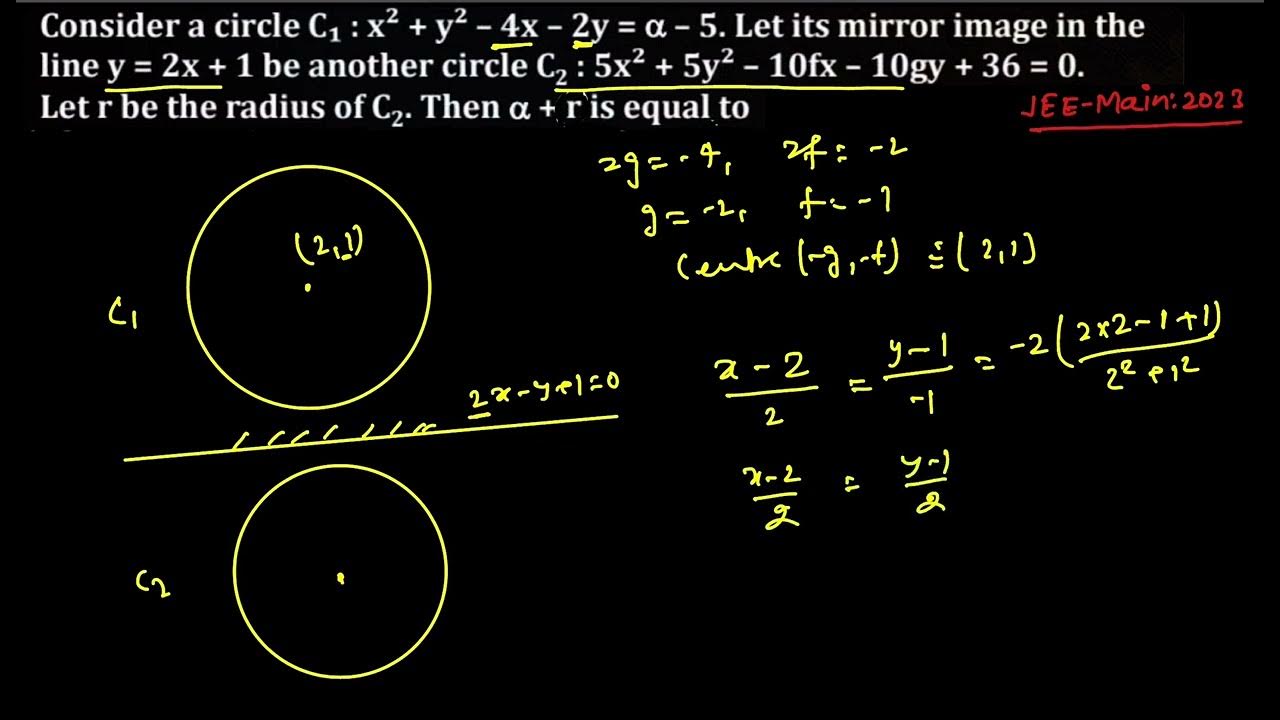 Consider a circle C₁ : x² + y² – 4x – 2y = α – 5. Let its mirror image in the
line y = 2x + 1 be another circle C₂ : 5x² + 5y² – 10fx – 10gy + 36 = 0.
Let r be the radius of C₂. Then α + r is equal to
JEE-Main:2023
2g = -4, 2f = -2
g = -2, f = -1
Centre (-g,-f) ≡ (2,1)
(2,1)
C₁
2x-y+1=0
x-2/2 = y-1/-1 = -2(2×2-1+1)/2²+1²
x-2/2 = y-1/2
C₂